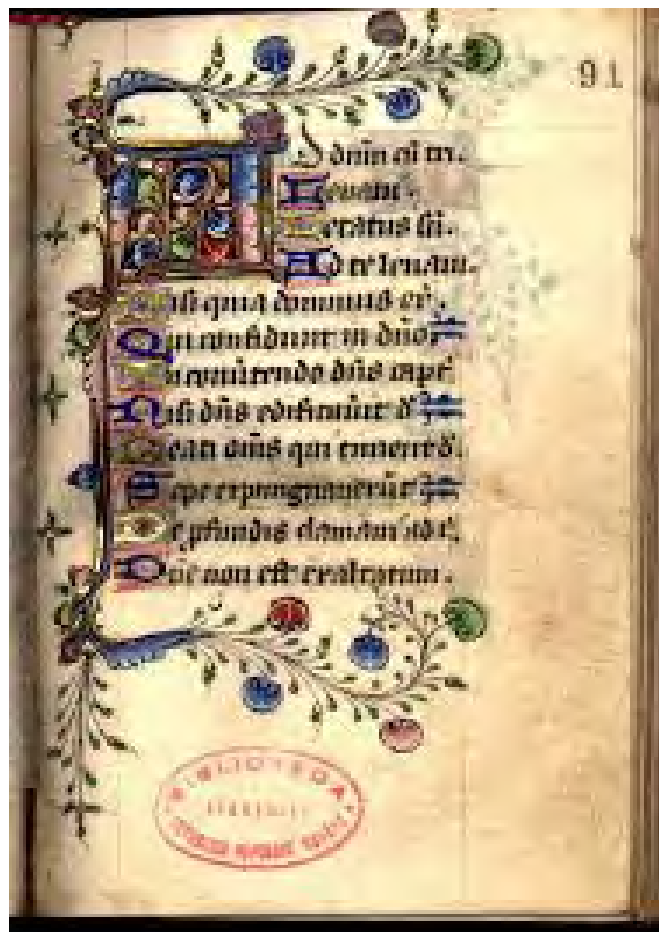 91
A d dnm cū tri.
Leuaui.
Letatus sū.
Ad te leuaui.
Nisi quia dominus er.
Qui confidunt in dño
In conūtendo dñs capt.
Nisi dñs edificauīt d
Beati oms qui timent d.
Sepe expugnauerūt
De pfundis clamaui ad t.
Dne non est exaltatum.
BIBLIOTECA